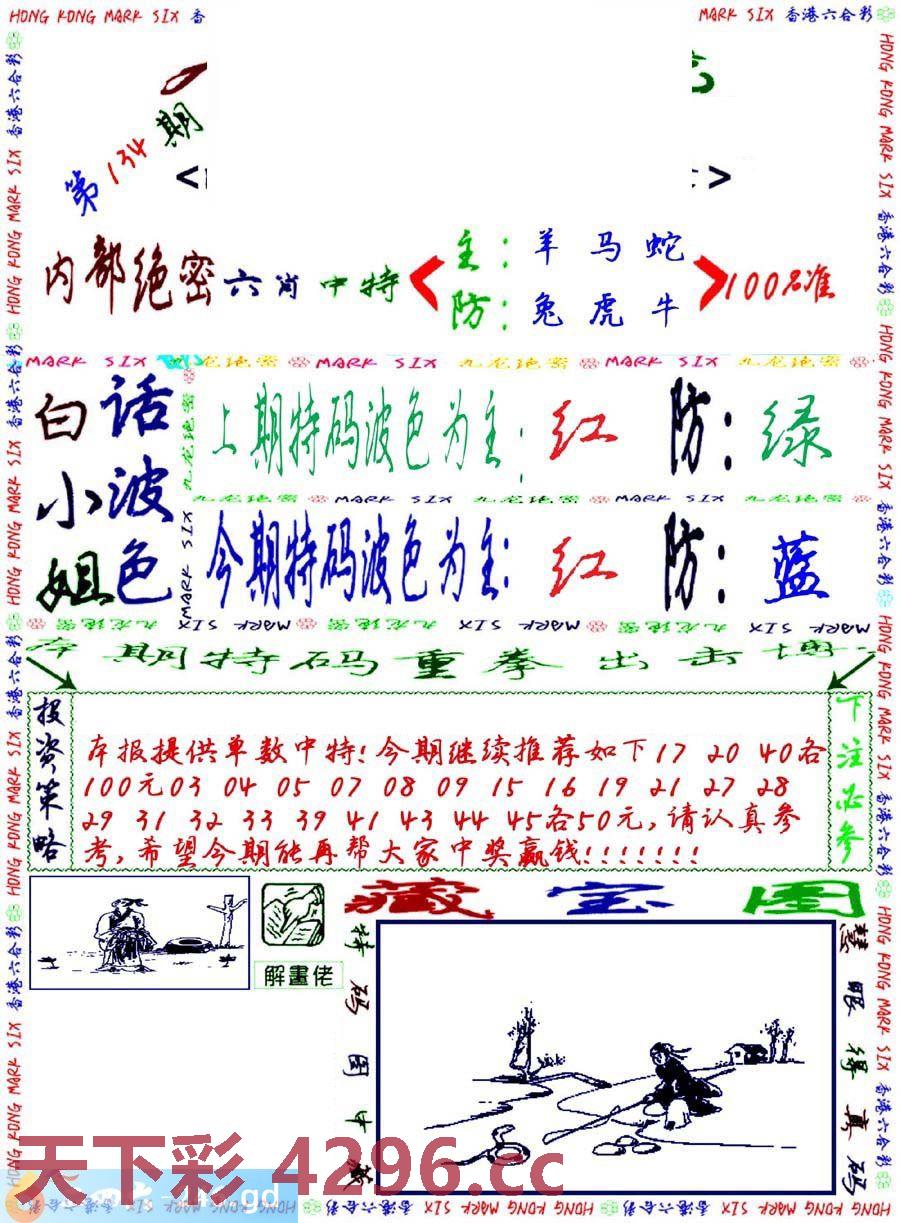 HONG KONG MARK SIX 香
MARK SIX 香港六合彩
第134期
<
>
内部绝密六肖中特
主：羊 马 蛇
防：兔 虎 牛
100%准
MARK SIX 九龙绝密 MARK SIX 九龙绝密 MARK SIX 九龙绝密
白话
小波
姐色
上期特码波色为主：红 防：绿
九龙绝密 MARK SIX 九龙绝密 MARK SIX 九龙绝密
今期特码波色为主：红 防：蓝
九龙绝密 MARK SIX 九龙绝密 MARK SIX 九龙绝密 MARK SIX
期特码重拳出击
投资策略
本报提供单数中特！今期继续推荐如下17 20 40各
100元03 04 05 07 08 09 15 16 19 21 27 28
29 31 32 33 39 41 43 44 45各50元，请认真参
考，希望今期能再帮大家中奖赢钱！！！！！！！
下注必参
藏宝图
解畫佬
特码图中藏
慧眼得真码
天下彩4296.cc
gd
HONG KONG MARK SIX 香港六合彩